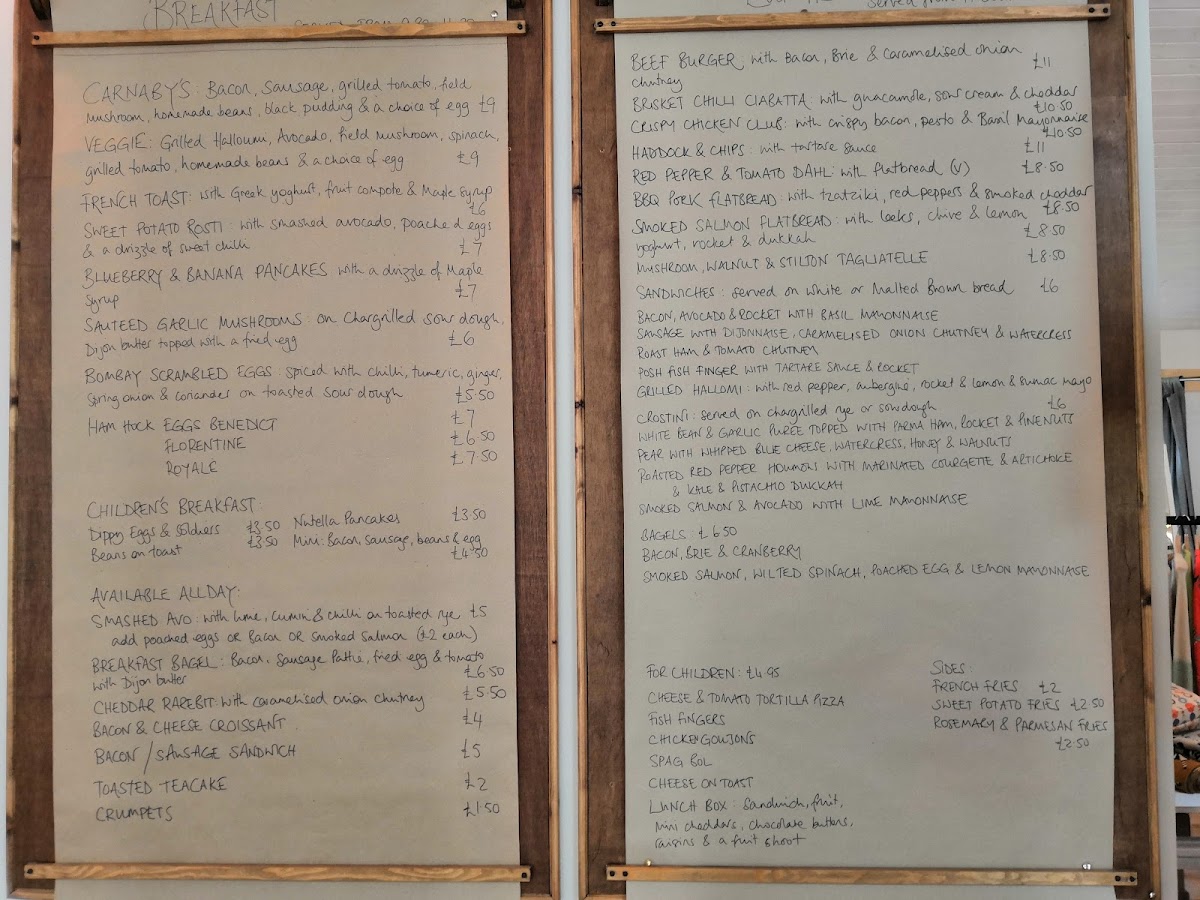 BREAKFAST
CARNABY'S: Bacon, Sausage, grilled tomato, field
mushroom, homemade beans, black pudding & a choice of egg £9
VEGGIE: Grilled Halloumi, Avocado, field mushroom, spinach,
grilled tomato, homemade beans & a choice of egg £9
FRENCH TOAST: with Greek yoghurt, fruit compote & Maple syrup
£6
SWEET POTATO ROSTI: with smashed avocado, poached eggs
& a drizzle of sweet chilli £7
BLUEBERRY & BANANA PANCAKES with a drizzle of Maple
Syrup £7
SAUTEED GARLIC MUSHROOMS: on Chargrilled sour dough,
Dijon butter topped with a fried egg £6
BOMBAY SCRAMBLED EGGS: spiced with chilli, tumeric, ginger,
Spring onion & coriander on toasted sour dough £5.50
HAM HOCK EGGS BENEDICT £7
FLORENTINE £6.50
ROYALE £7.50
CHILDREN'S BREAKFAST:
Dippy Eggs & Soldiers £3.50 Nutella Pancakes £3.50
Beans on toast £3.50 Mini: Bacon, sausage, beans & egg
£4.50
AVAILABLE ALLDAY:
SMASHED AVO: with lime, cumin & chilli on toasted rye £5
add poached eggs OR Bacon OR smoked salmon (£2 each)
BREAKFAST BAGEL: Bacon, Sausage Pattie, fried egg & tomato
with Dijon butter £6.50
CHEDDAR RAREBIT: with caramelised onion chutney £5.50
BACON & CHEESE CROISSANT £4
BACON / SAUSAGE SANDWICH £5
TOASTED TEACAKE £2
CRUMPETS £1.50
BEEF BURGER: with Bacon, Brie & Caramelised onion £11
chutney
BRISKET CHILLI CIABATTA: with guacamole, sour cream & cheddar
£10.50
CRISPY CHICKEN CLUB: with crispy bacon, pesto & Basil Mayonnaise
£10.50
HADDOCK & CHIPS: with tartare sauce £11
RED PEPPER & TOMATO DAHL: with flatbread (V) £8.50
BBQ PORK FLATBREAD: with tzatziki, red peppers & smoked cheddar
£8.50
SMOKED SALMON FLATBREAD: with leeks, chive & lemon
yoghurt, rocket & dukkah £8.50
MUSHROOM, WALNUT & STILTON TAGLIATELLE £8.50
SANDWICHES: served on white or Malted Brown bread £6
BACON, AVOCADO & ROCKET WITH BASIL MAYONNAISE
SAUSAGE WITH DIJONNAISE, CARAMELISED ONION CHUTNEY & WATERCRESS
ROAST HAM & TOMATO CHUTNEY
POSH FISH FINGER WITH TARTARE SAUCE & ROCKET
GRILLED HALLOMI: with red pepper, aubergine, rocket & lemon & sumac mayo
CROSTINI: served on chargrilled rye or sourdough £6
WHITE BEAN & GARLIC PUREE TOPPED WITH PARMA HAM, ROCKET & PINENUTS
PEAR WITH WHIPPED BLUE CHEESE, WATERCRESS, HONEY & WALNUTS
ROASTED RED PEPPER HOUMOUS WITH MARINATED COURGETTE & ARTICHOKE
& KALE & PISTACHIO DUKKAH
SMOKED SALMON & AVOCADO WITH LIME MAYONNAISE
BAGELS: £6.50
BACON, BRIE & CRANBERRY
SMOKED SALMON, WILTED SPINACH, POACHED EGG & LEMON MAYONNAISE
FOR CHILDREN: £4.95
CHEESE & TOMATO TORTILLA PIZZA
FISH FINGERS
CHICKEN GOUJONS
SPAG BOL
CHEESE ON TOAST
LUNCH BOX: Sandwich, fruit,
mini cheddars, chocolate buttons,
raisins & a fruit shoot
SIDES:
FRENCH FRIES £2
SWEET POTATO FRIES £2.50
ROSEMARY & PARMESAN FRIES
£2.50